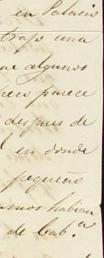 en Palacio
trajo una
que algunos
parece
despues de
en donde
pequeño
habian
de Cab.ª